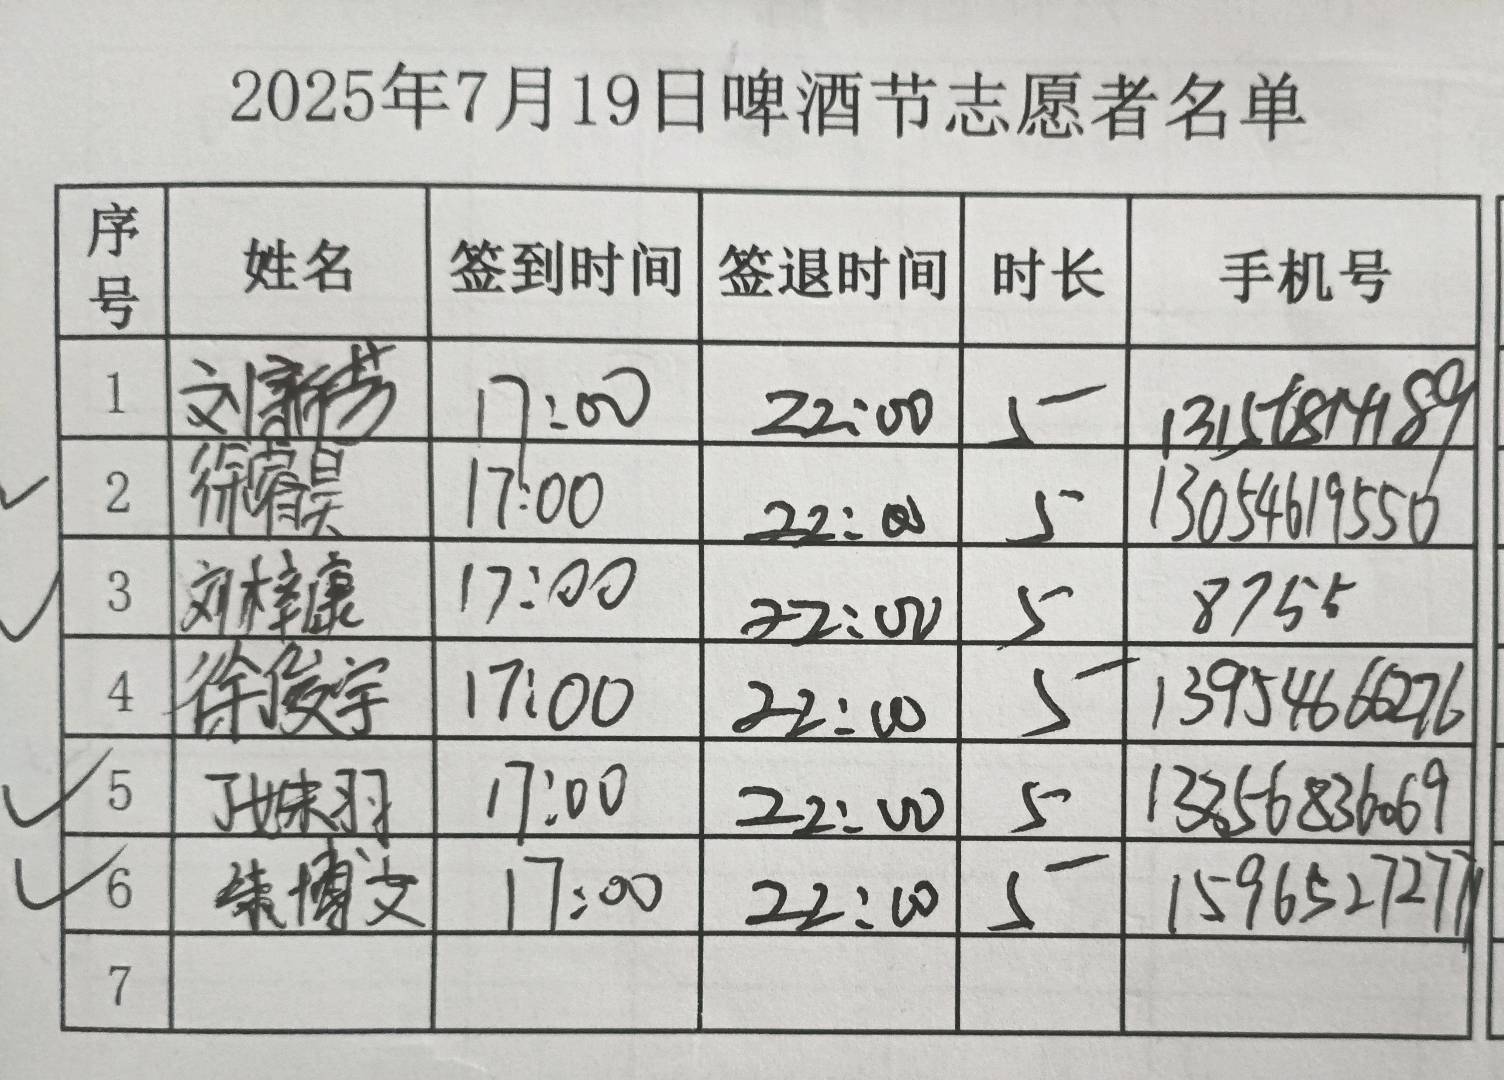 2025年7月19日啤酒节志愿者名单
序号 姓名 签到时间 签退时间 时长 手机号
1 刘 芳 17:00 22:00 5
2 徐睿昊 17:00 22:00 5 13054619550
3 刘梓康 17:00 22:00 5 8755
4 徐俊宇 17:00 22:00 5 13954666276
5 丁姝羽 17:00 22:00 5 13356836069
6 博文 17:00 22:00 5 15965272777
7